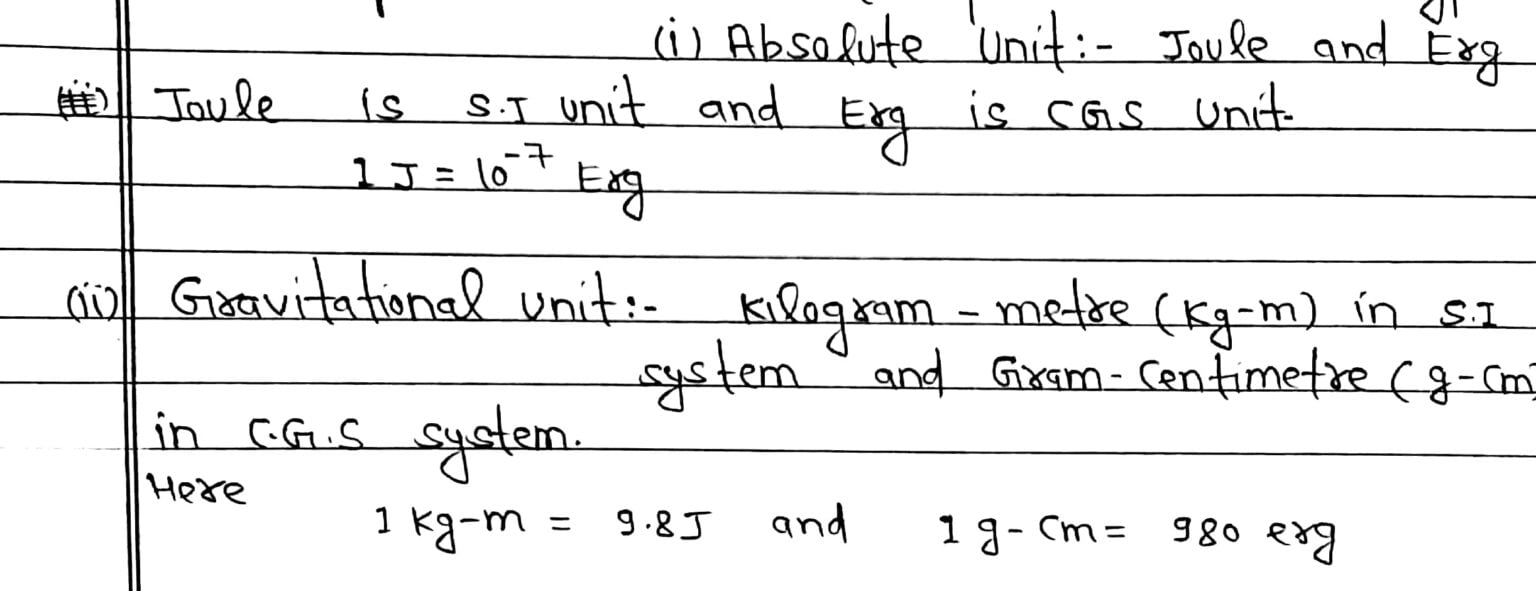 (i) Absolute Unit:- Joule and Erg
Joule is S.I unit and Erg is CGS unit.
1 J = 10⁻⁷ Erg
(ii) Gravitational unit:- Kilogram - metre (Kg-m) in S.I
system and Gram - Centimetre (g-cm)
in C.G.S system.
Here
1 Kg-m = 9.8J and 1 g-cm = 980 erg